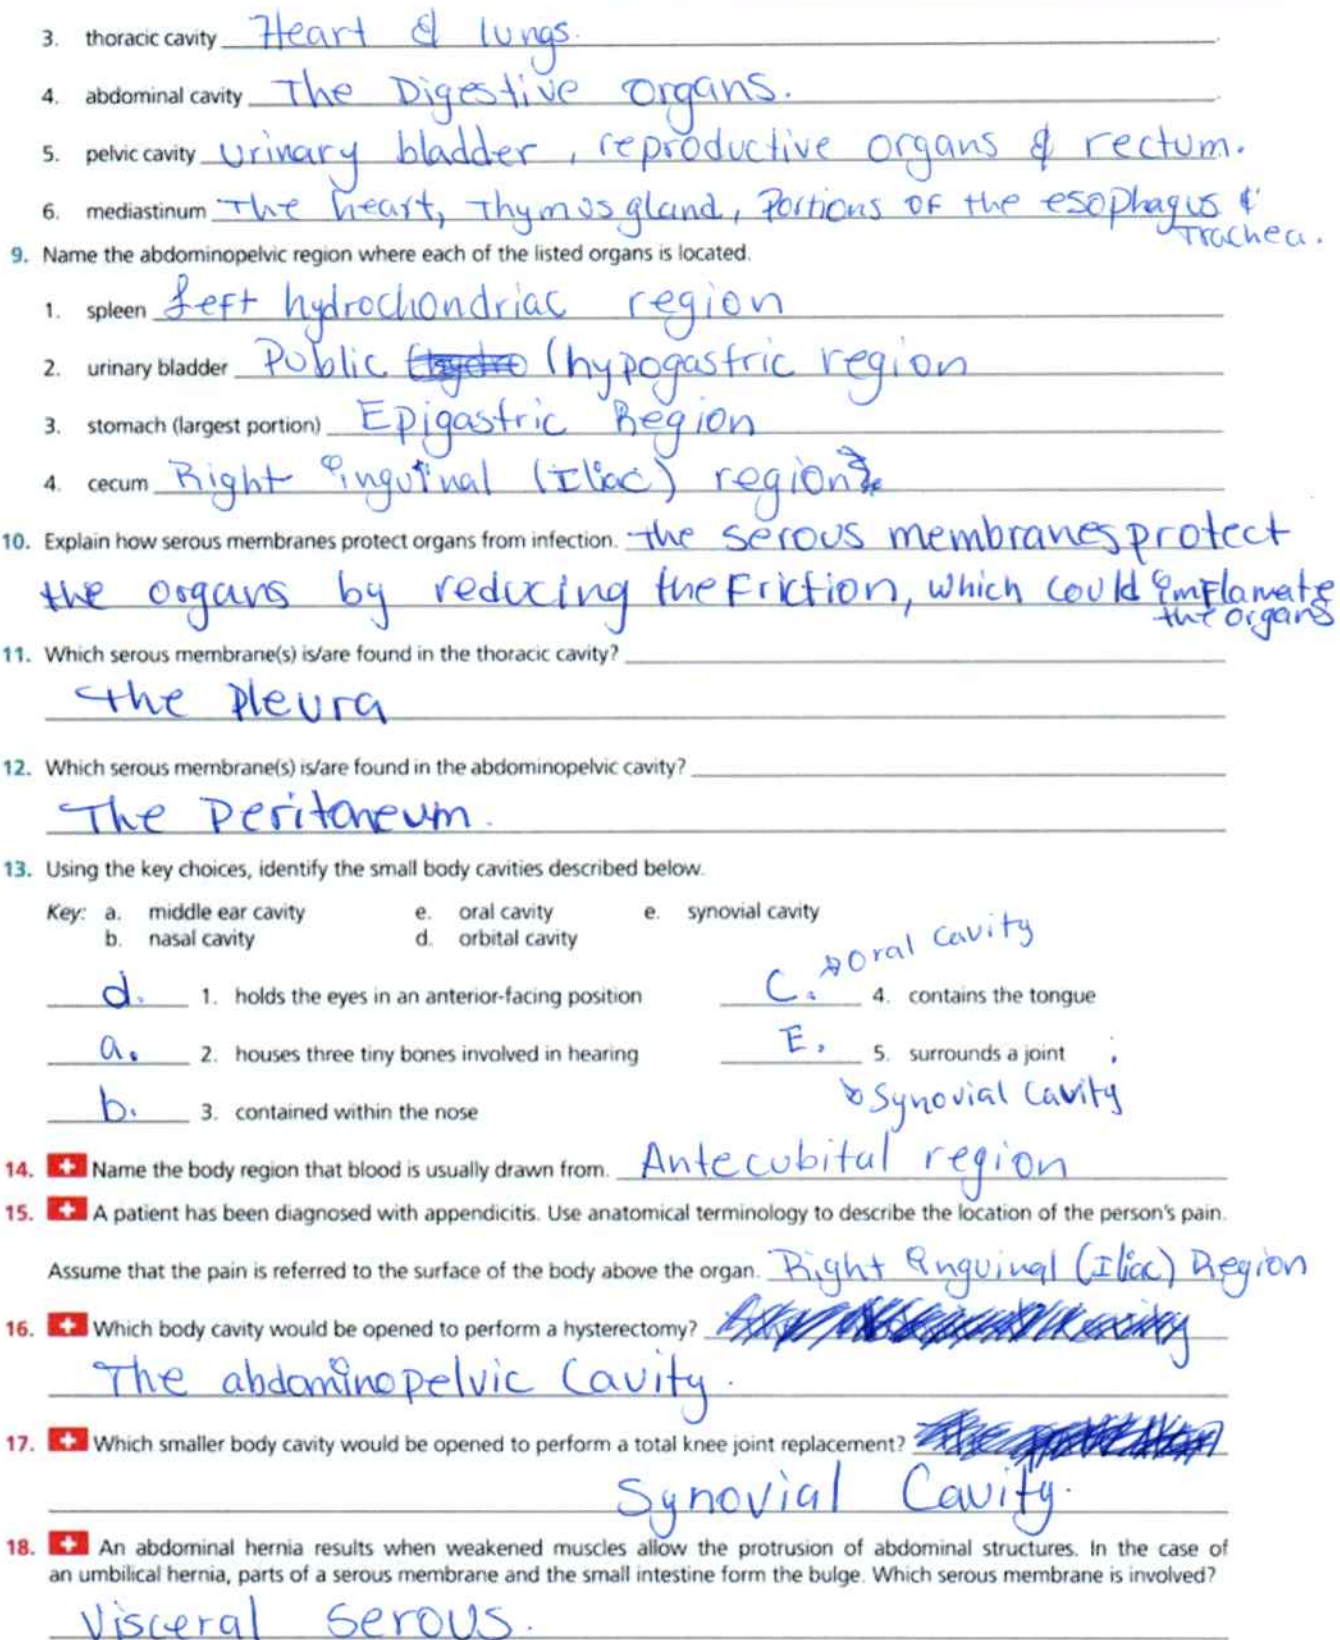 3. thoracic cavity Heart & lungs.
4. abdominal cavity The Digestive organs.
5. pelvic cavity Urinary bladder, reproductive organs & rectum.
6. mediastinum The heart, Thymos gland, Portions OF the esophagus &
Trachea.
9. Name the abdominopelvic region where each of the listed organs is located.
1. spleen Left hydrochondriac region
2. urinary bladder Public (hypogastric region
3. stomach (largest portion) Epigastric Region
4. cecum Right inguinal (Iliac) region
10. Explain how serous membranes protect organs from infection. the serous membranes protect
the organs by reducing the Friction, which could imflamate
the organs
11. Which serous membrane(s) is/are found in the thoracic cavity?
the Pleura
12. Which serous membrane(s) is/are found in the abdominopelvic cavity?
The Peritoneum.
13. Using the key choices, identify the small body cavities described below.
Key: a. middle ear cavity e. oral cavity e. synovial cavity
b. nasal cavity d. orbital cavity
Oral Cavity
d. 1. holds the eyes in an anterior-facing position C. 4. contains the tongue
a. 2. houses three tiny bones involved in hearing E. 5. surrounds a joint
Synovial Cavity
b. 3. contained within the nose
14. Name the body region that blood is usually drawn from. Antecubital region
15. A patient has been diagnosed with appendicitis. Use anatomical terminology to describe the location of the person's pain.
Assume that the pain is referred to the surface of the body above the organ. Right inguinal (Iliac) Region
16. Which body cavity would be opened to perform a hysterectomy?
The abdominopelvic Cavity.
17. Which smaller body cavity would be opened to perform a total knee joint replacement?
Synovial Cavity.
18. An abdominal hernia results when weakened muscles allow the protrusion of abdominal structures. In the case of
an umbilical hernia, parts of a serous membrane and the small intestine form the bulge. Which serous membrane is involved?
Visceral Serous.